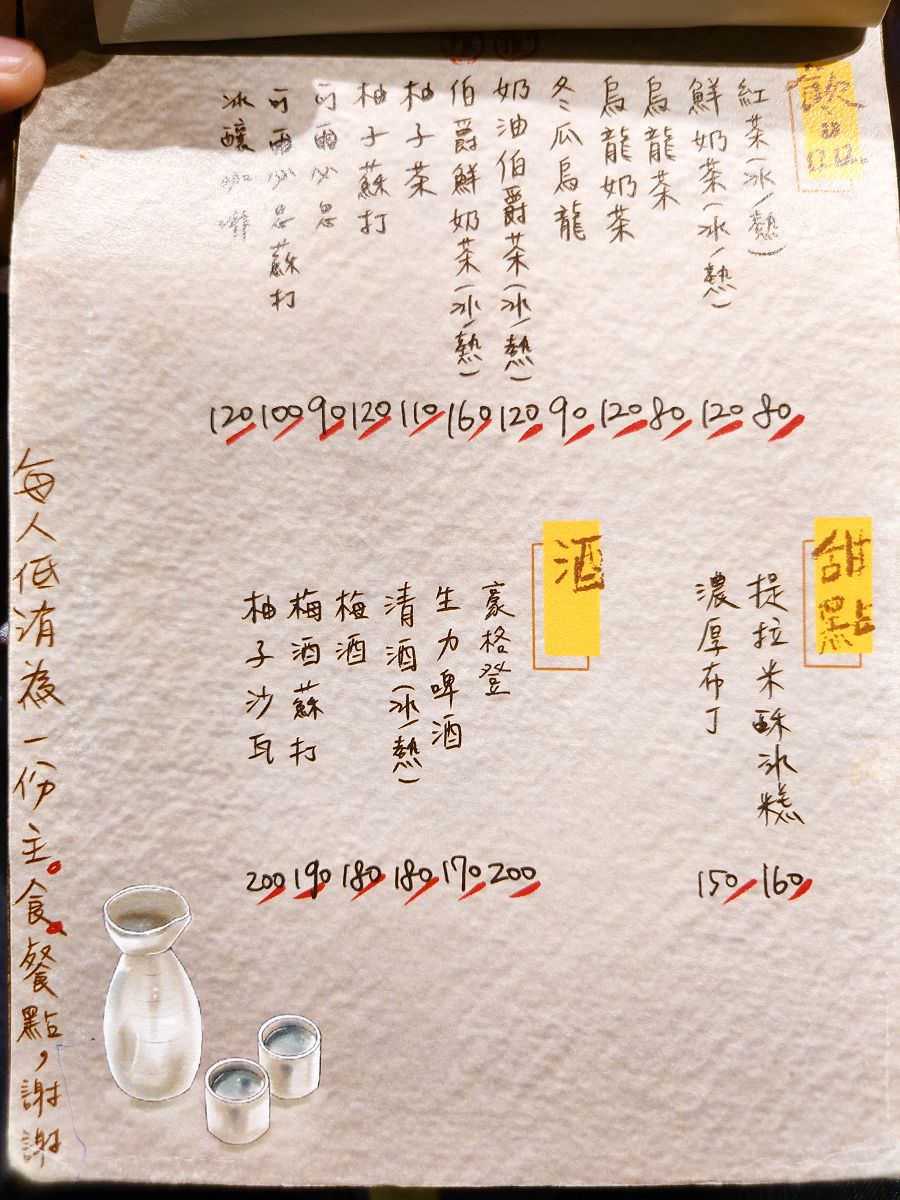 飲品
紅茶(冰/熱) 80
鮮奶茶(冰/熱) 120
烏龍茶 80
烏龍奶茶 120
冬瓜烏龍 90
推 奶油伯爵茶(冰/熱) 120
推 伯爵鮮奶茶(冰/熱) 160
柚子茶 110
柚子蘇打 120
可爾必思 90
可爾必思蘇打 100
冰釀咖啡 120
甜點
提拉米酥冰糕 160
濃厚布丁 150
酒
豪格登 200
生力啤酒 170
清酒(冰/熱) 180
梅酒 180
梅酒蘇打 190
柚子沙瓦 200
每人低消為一份主食餐點,謝謝